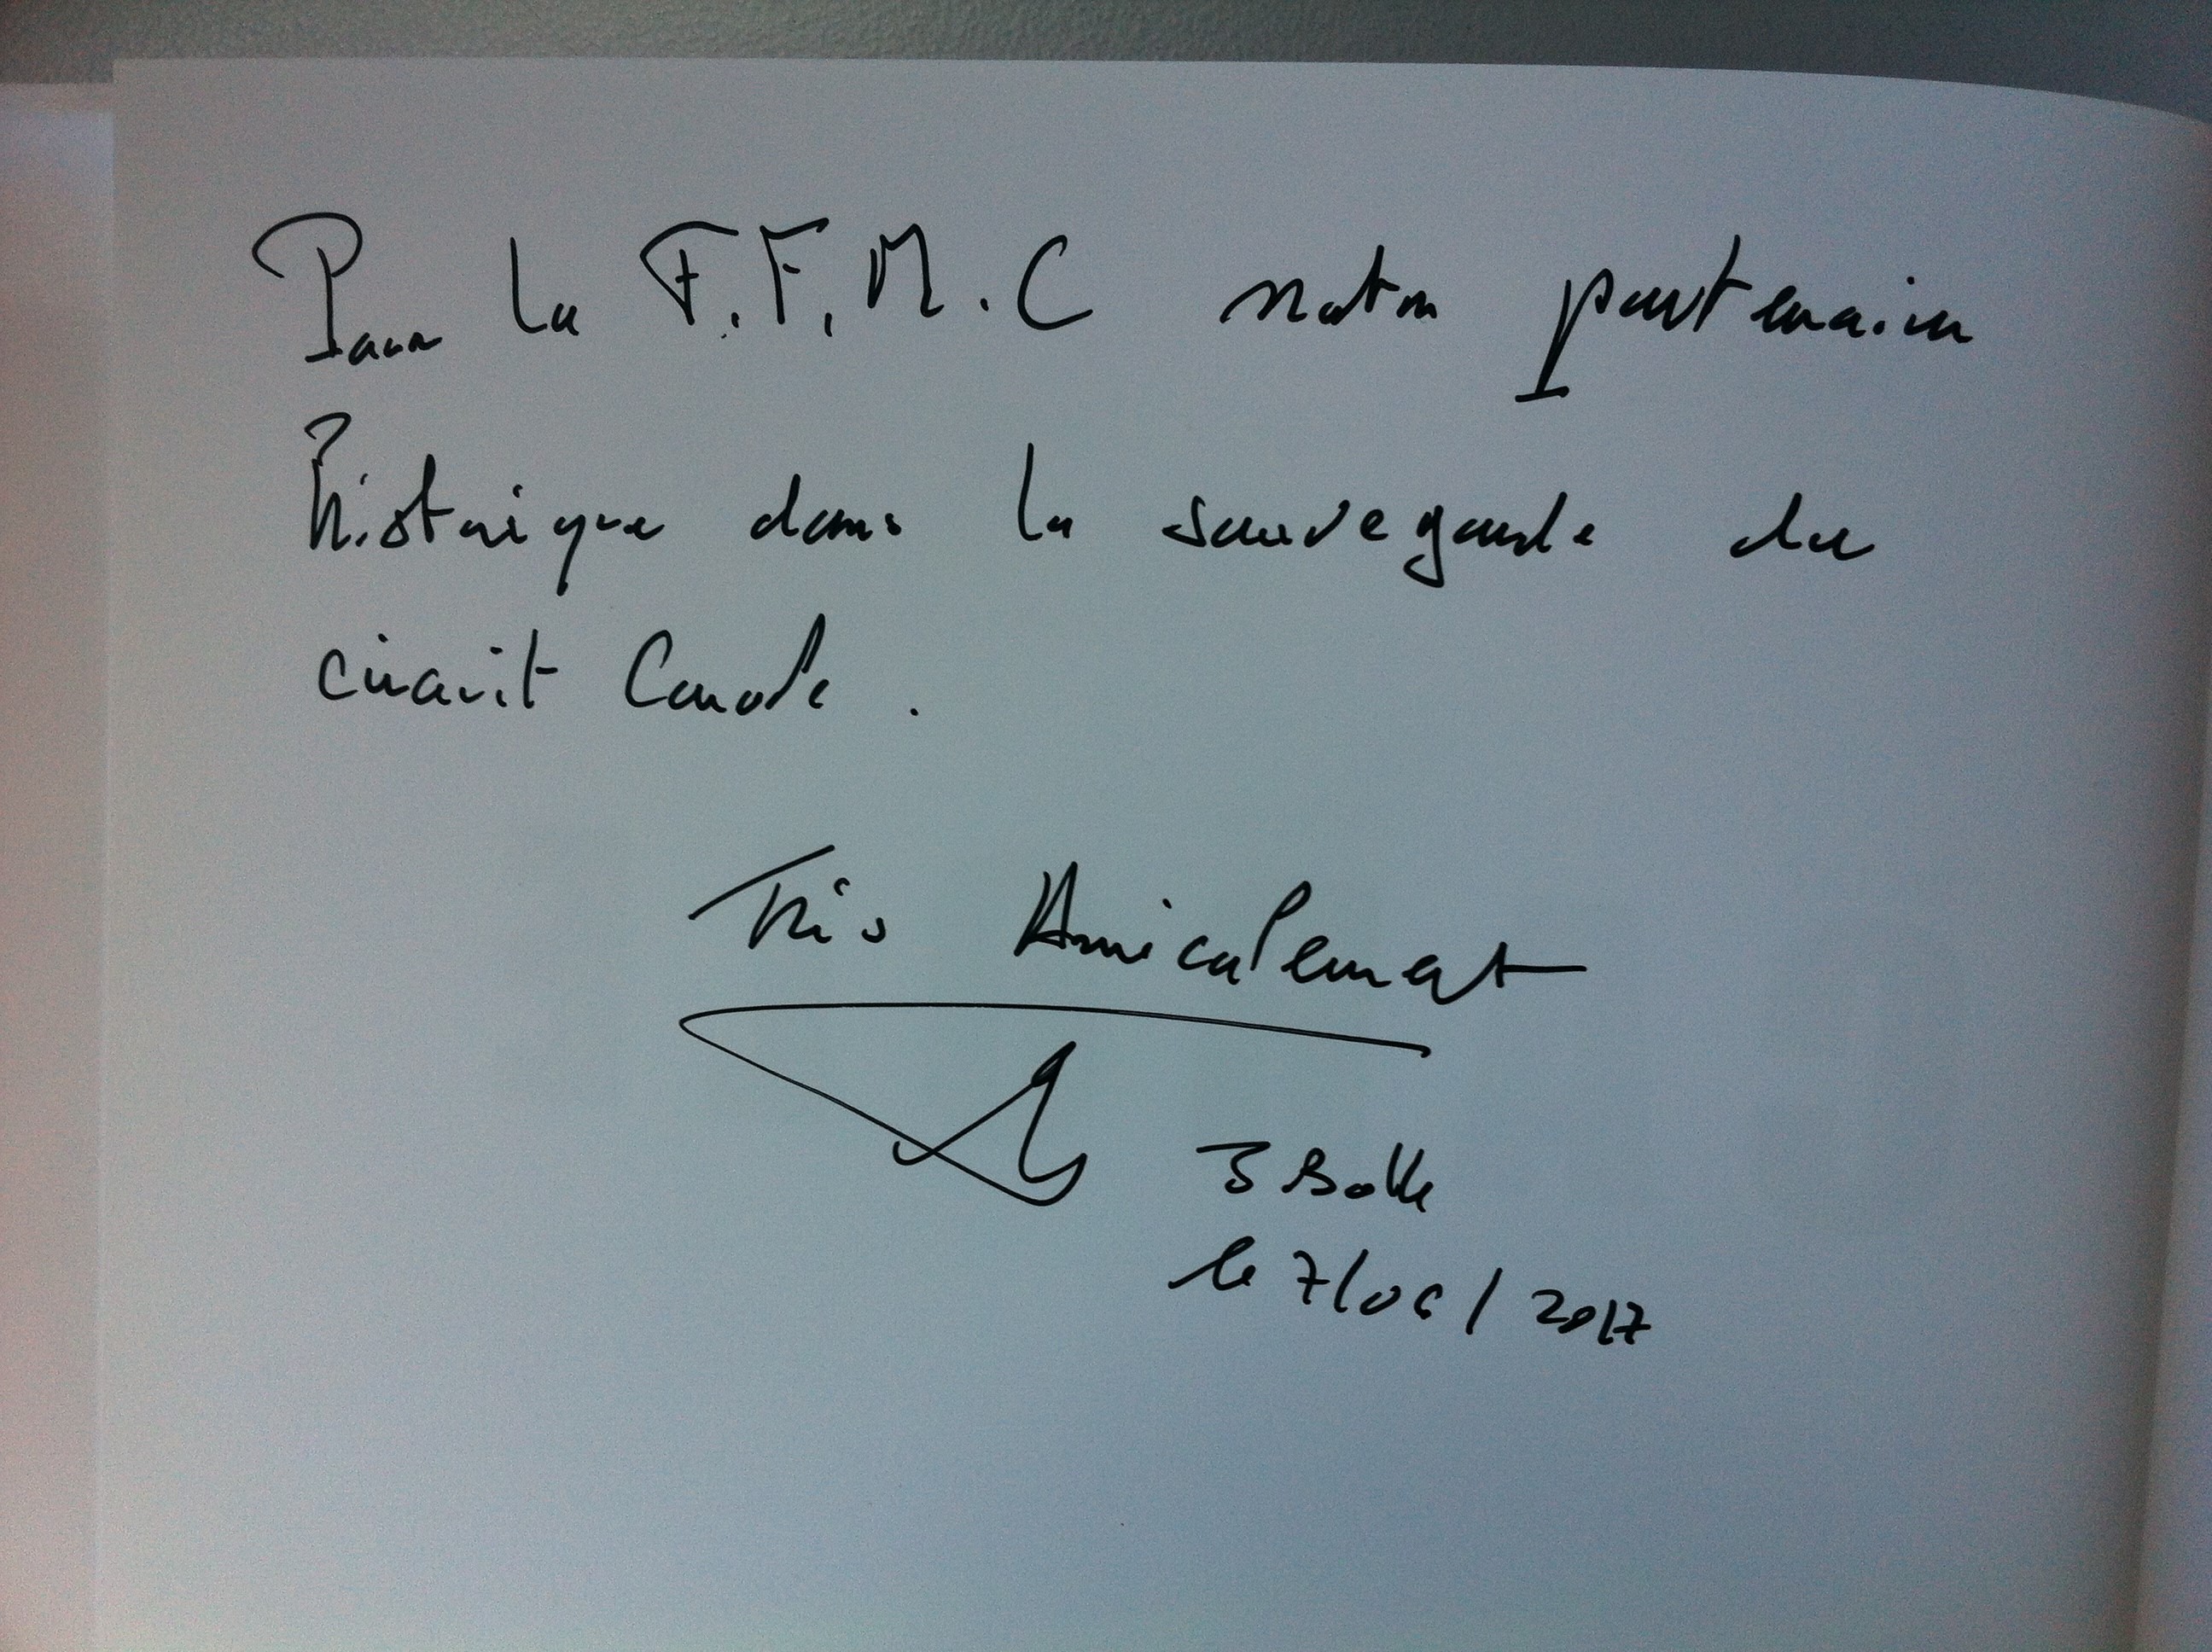 Pour la F.F.M.C notre partenaire
historique dans la sauvegarde du
circuit Carole.
Très Amicalement
J Bolle
le 7/06/2017